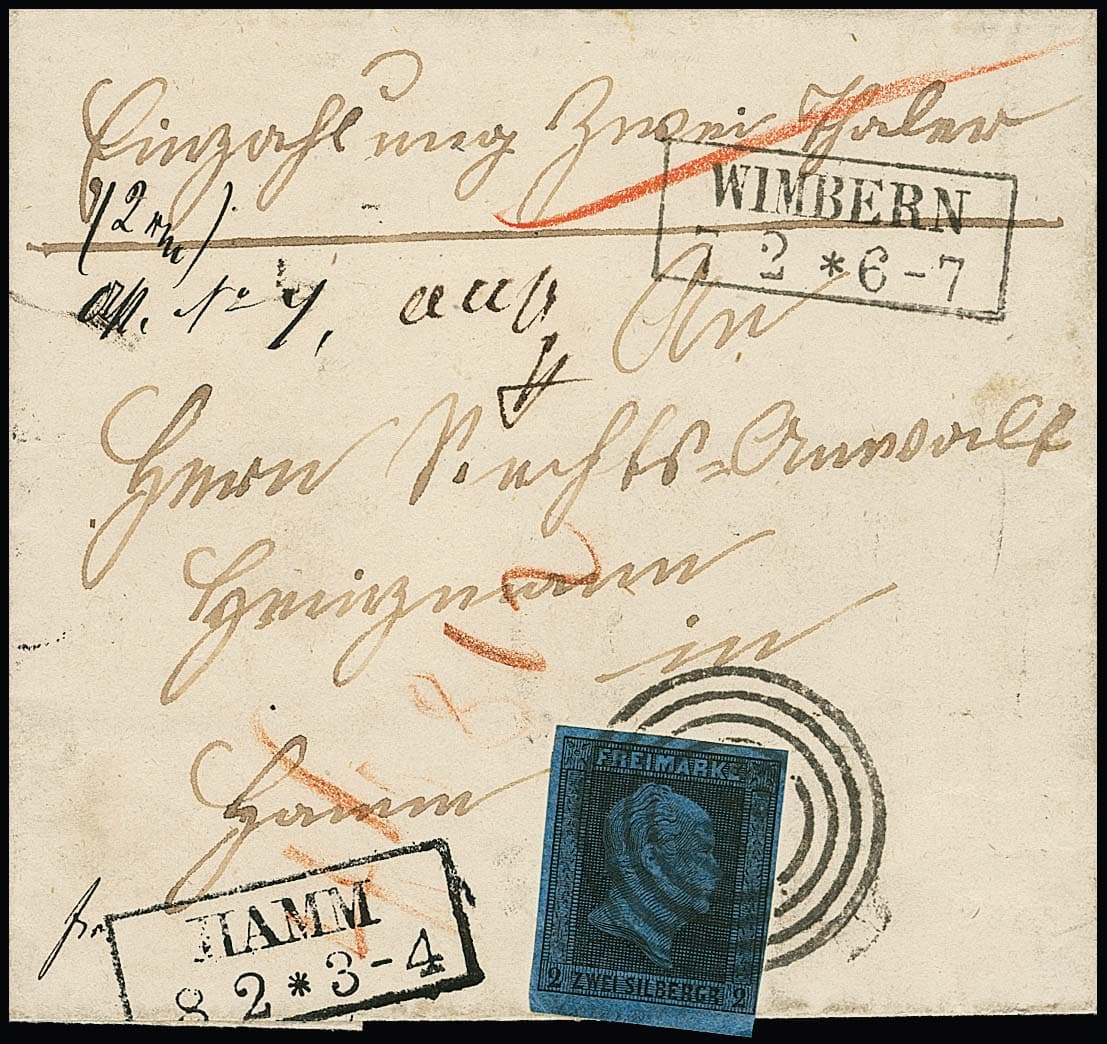 Einzahlung Zwei Thaler
WIMBERN
7 2 * 6-7
(2
No
An
Herrn Rechts-Anwalt
Heinzmann
in
Hamm
FREIMARKE
2 ZWEI SILBERGR 2
HAMM
8 2 * 3-4